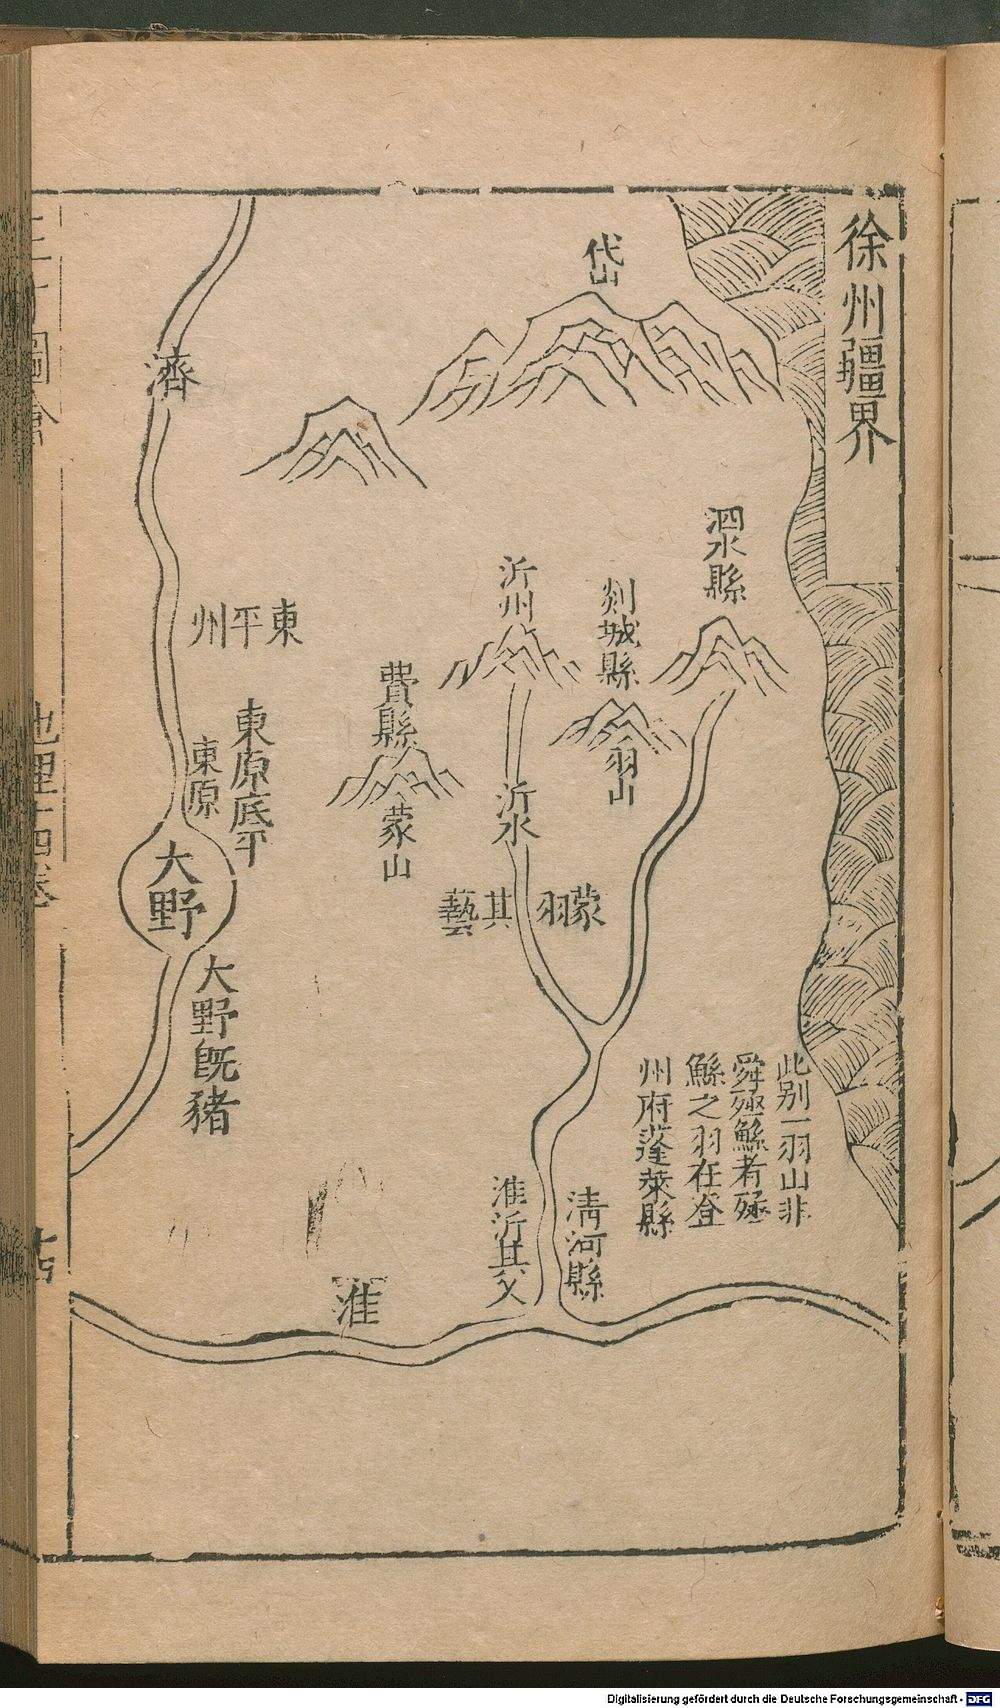 徐州疆界
岱山
泗水縣
剡城縣
羽山
沂州
沂水
費縣
蒙山
蒙羽其藝
東平州
東原底平
東原
濟
大野
大野既豬
此别一羽山非
舜殛鯀者殛
鯀之羽在登
州府蓬萊縣
清河縣
淮沂其乂
淮
三才圖會
地理十四卷
Digitalisierung gefördert durch die Deutsche Forschungsgemeinschaft - DFG